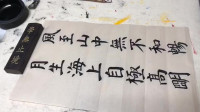 風至山中無不和暢
月生海上自極高明